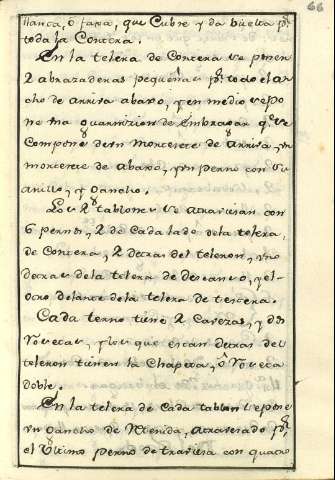 66
llanca, ó faxa, que Cubre y da buelta pr.
toda la Contera.
En la telera de Contera se ponen
2 abrazaderas pequeñas pr. todo el an
cho de arriva abaxo, y en medio se po
ne una guarnicion de Embragar qe. se
Compone de un Monterete de arriva, y un
monterete de abaxo, y un perno con su
anillo, y gancho.
Los 2 tablones se atraviesan con
6 pernos, 2 de Cada lado de la telera
de Contera, 2 detras del teleron, uno
detras de la telera de descanso, y el
otro delante de la telera de tesera.
Cada terno tiene 2 Cavezas, y dos
Rosetas, y los que estan detras del
teleron tienen la Chapeta, ó Roseta
doble.
En la telera de Cada tablon se pone
un Gancho de Retenida, atravesado pr.
el Ultimo perno de travesia con quatro